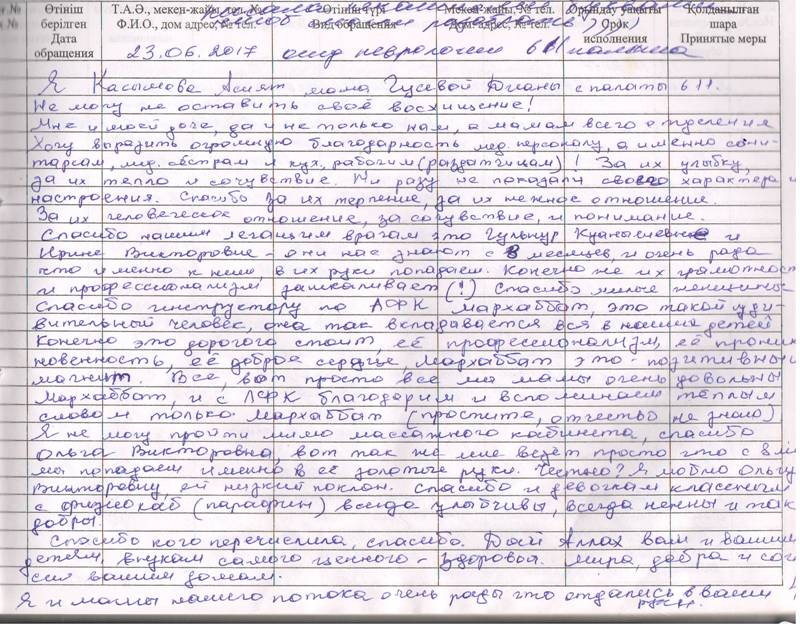 Өтініш Т.А.Ә., мекен-жайы, тел. № Өтініш түрі Мекен-жайы, № тел. Орындау уақыты Қолданылған
берілген Ф.И.О., дом адрес, № тел. Вид обращения Дом. адрес, № тел. Срок шара
Дата исполнения Принятые меры
обращения 23.06.2017 отд неврологии 611 палата
Я Касымова Асият мама Гусевой Дианы с палаты 611.
Не могу не оставить своё восхищение!
Мне и моей доче, да и не только нам, а мамам всего отделения
Хочу выразить огромную благодарность мед. персоналу, а именно сани-
таркам, мед. сёстрам и кух. рабочим (раздатчицам)! За их улыбку,
за их тепло и сочувствие. Ни разу не показали своего характера и
настроения. Спасибо за их терпение, за их нежное отношение.
За их человеческое отношение, за сочувствие, и понимание.
Спасибо нашим лечащим врачам это Гульнур и
Ирине Викторовне - они нас знают с 8 месяцев, и очень рада
что именно к ним, в их руки попадаем. Конечно же их грамотность
и профессионализм зашкаливает (!) Спасибо милые женщины
Спасибо инструктору по ЛФК Мархаббат, это такой уди-
вительный человек, она так вкладывается вся в наших детей
Конечно это дорогого стоит, её профессионализм, её проник
новенность, её доброе сердце, Мархаббат это - позитивный
магнит. Все, вот просто все мы мамы очень довольны
Мархаббат, и с ЛФК благодарим и вспоминаем тёплым
словом только Мархаббат (простите, отчество не знаю)
Я не могу пройти мимо массажного кабинета, спасибо
Ольга Викторовна, вот так же мне везёт просто что с 8 м
мы попадаем именно в её золотые руки. Честно? Я люблю Ольгу
Викторовну, ей низкий поклон. Спасибо и девочкам классным
с физиокаб (парафин) всегда улыбчивы, всегда нежны и так
добры.
Спасибо кого перечислила, спасибо. Дай Аллах вам и вашим
детям, внукам самого ценного - Здоровья. Мира, добра и сог
сия вашим домам.
Я и мамы нашего потока очень рады что отдались в ваши
руки.